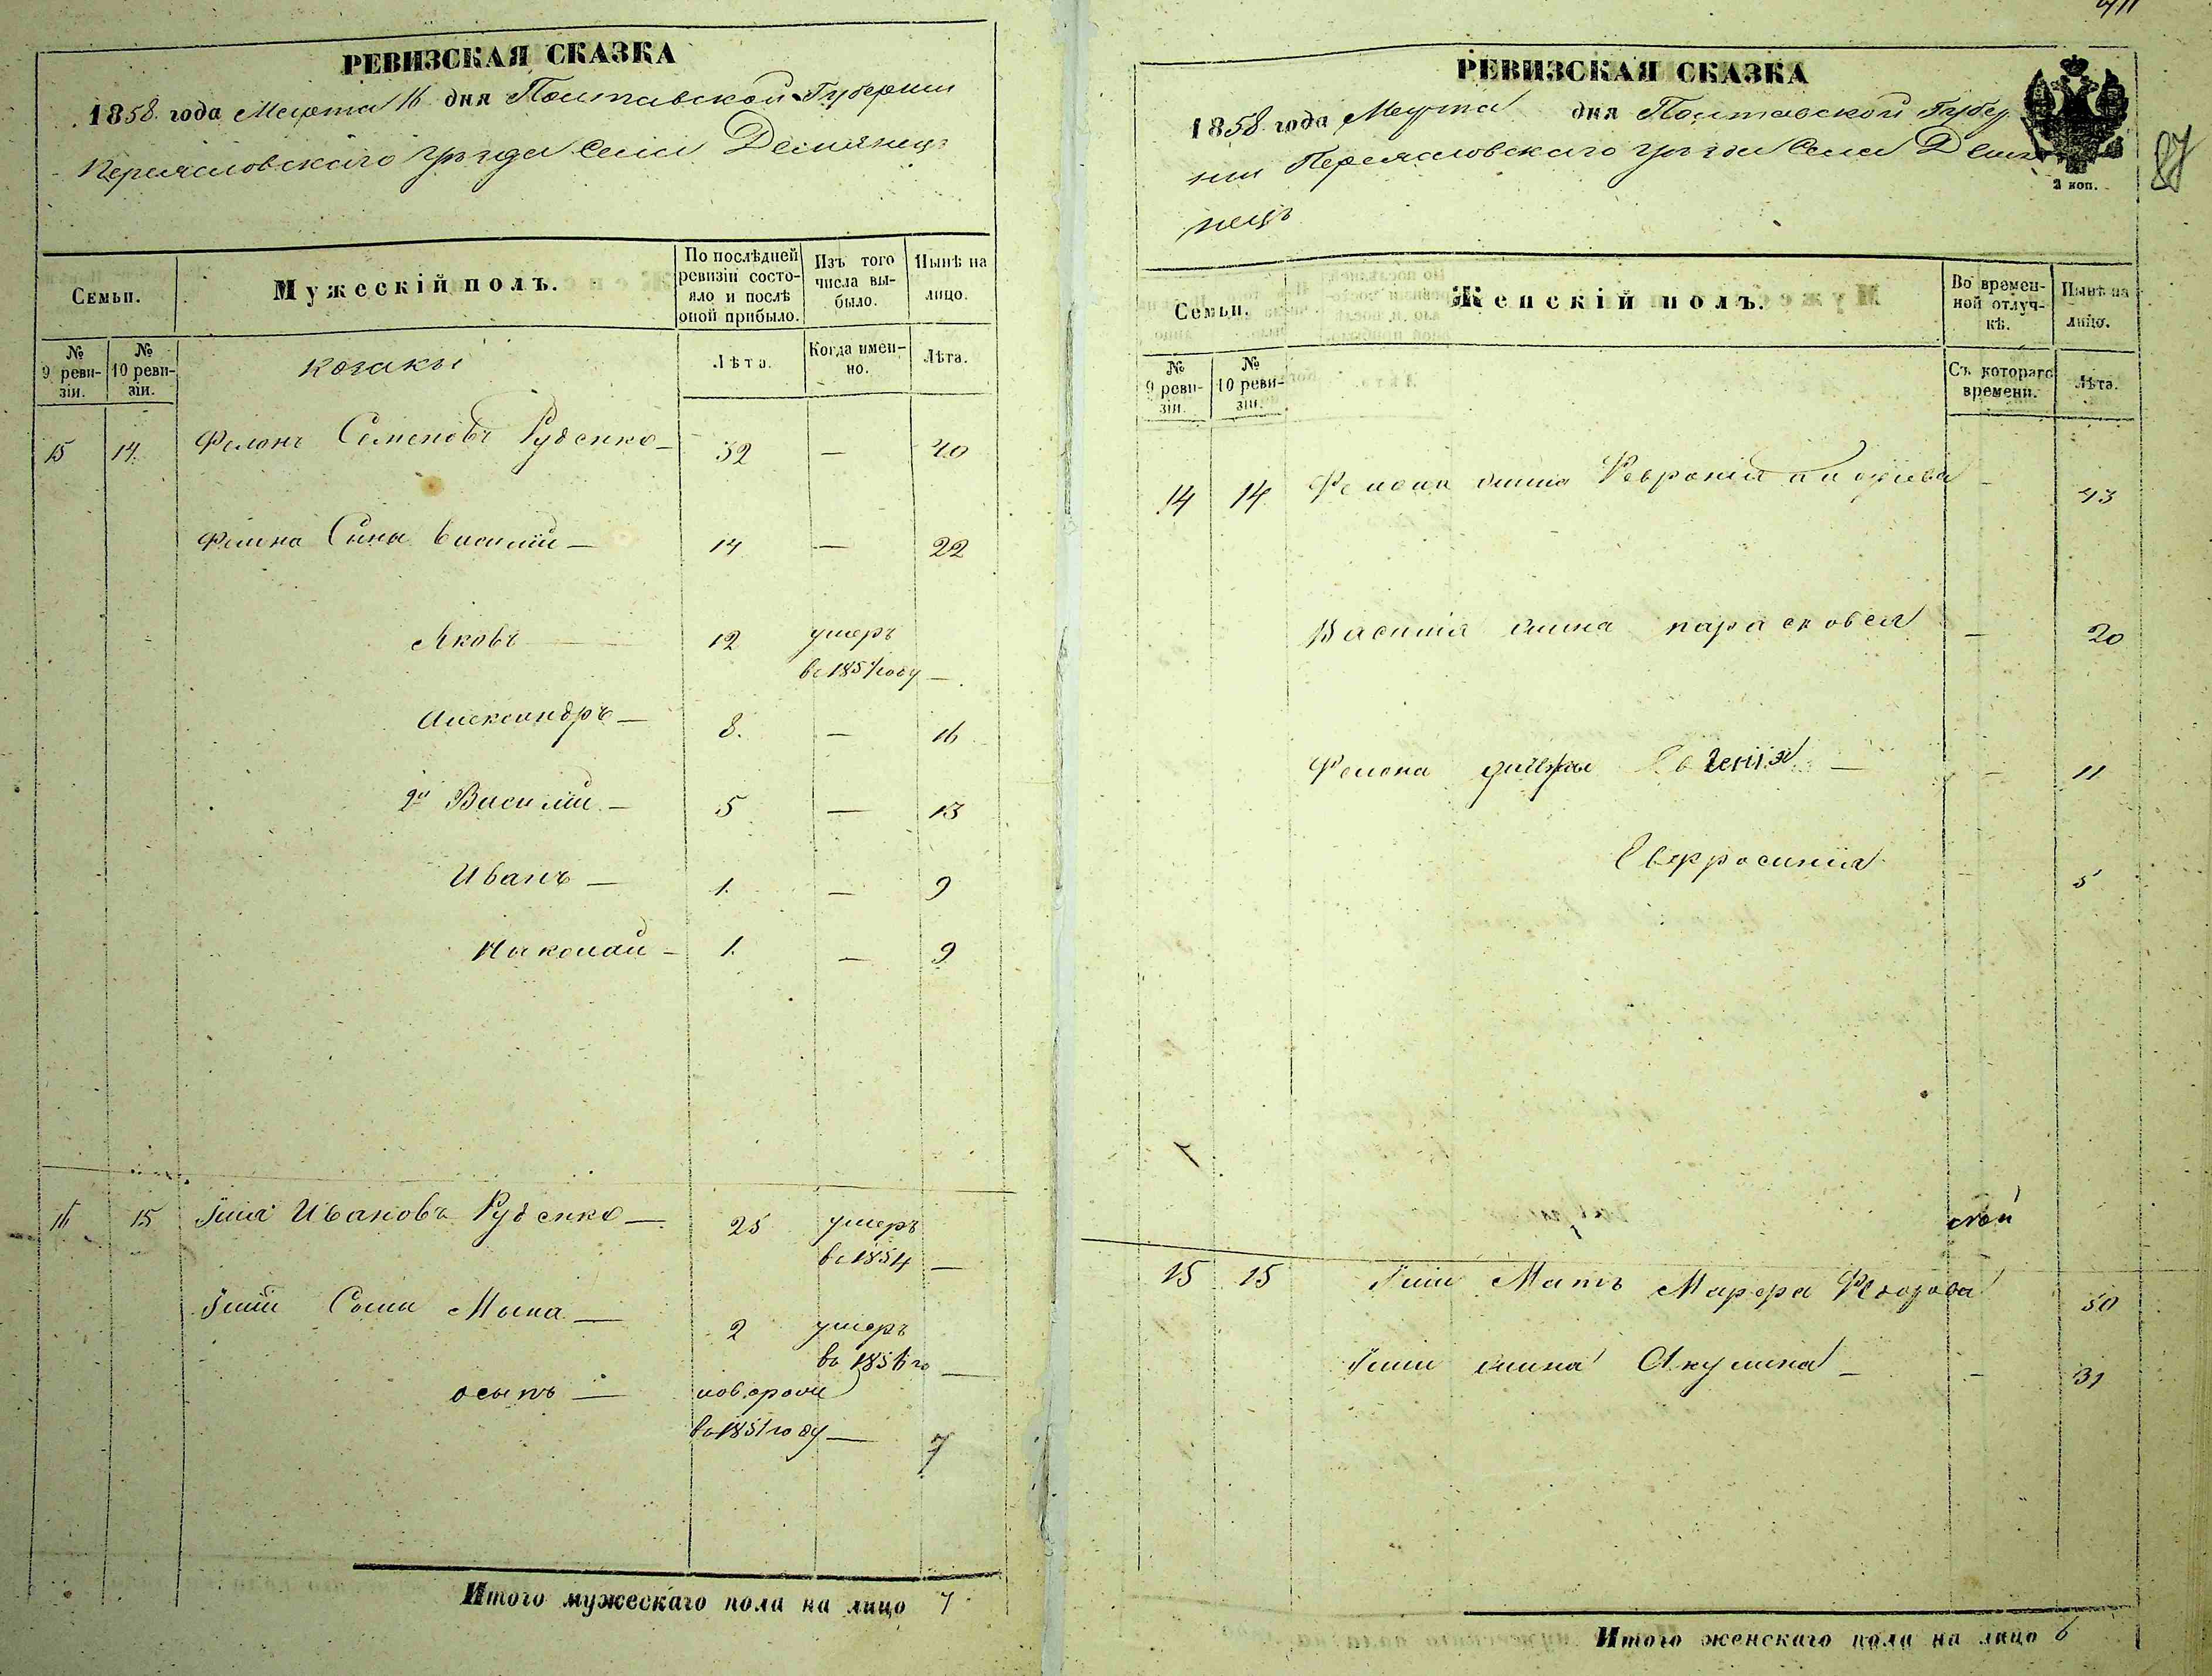 РЕВИЗСКАЯ СКАЗКА
1858 года Марта 16 дня Полтавской Губернии
Переясловскаго уезда Села Демянец
Семьи.
Мужескій полъ.
По послѣдней ревизіи состояло и послѣ оной прибыло.
Изъ того числа выбыло.
Нынѣ на лицо.
№ 9 ревизіи.
№ 10 ревизіи.
козаки
Лѣта.
Когда именно.
Лѣта.
15 14 Филонъ Семеновъ Руденко — 32 — 40
Филона Сыны Василій — 14 — 22
Яковъ 12 умеръ
въ 1851 году —
Александръ — 8. — 16
2й Василій — 5 — 13
Иванъ — 1. — 9
Николай — 1. — 9
16 15 Ивановъ Руденко — 25 умеръ
въ 1854 —
Сыны 2 умеръ
въ —
осыпъ —
въ 1851 году — 7
Итого мужескаго пола на лицо 7
РЕВИЗСКАЯ СКАЗКА
1858 года Марта дня Полтавской Губер
нии Переясловскаго уезда Села Демя
нецъ
2 коп.
87
Семьи.
Женскій полъ.
Во временной отлучкѣ.
Нынѣ на лицо.
№ 9 ревизіи.
№ 10 ревизіи.
Съ котораго времени.
Лѣта.
14 14 Филона жина Феврония — 43
Василія жина парасковея — 20
Филона дочери Евгения — — 11
Евфросиния — 5
15 15 Мать Марфа Федорова 50
жина Акулина — — 31
Итого женскаго пола на лицо 6